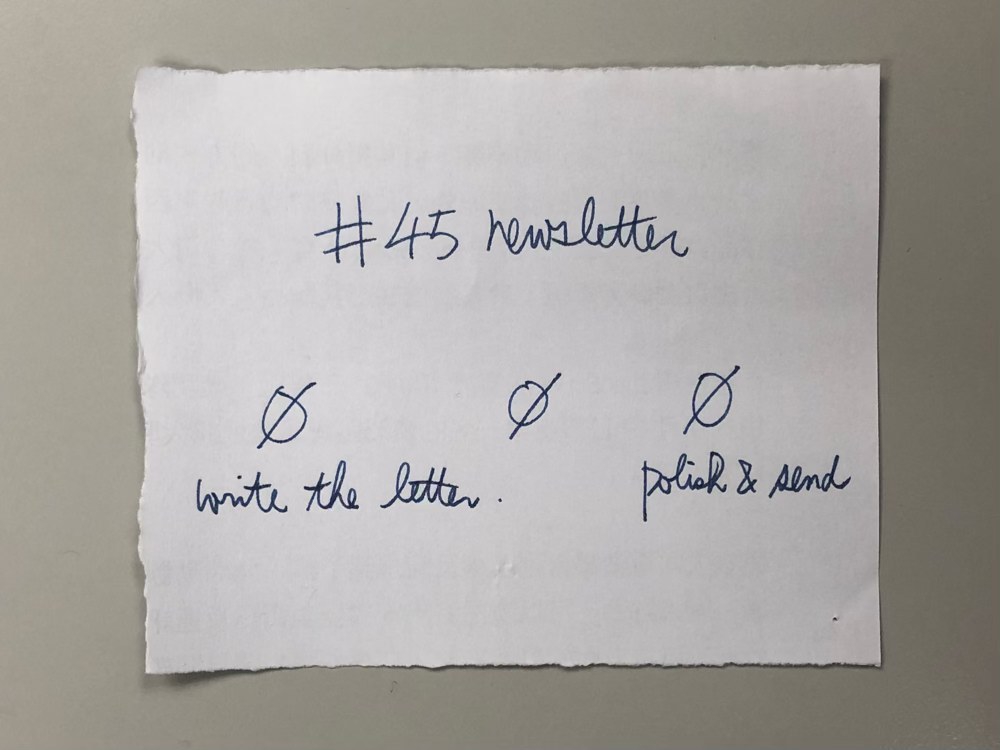 #45 newsletter
Ø Ø Ø
write the letter. polish & send